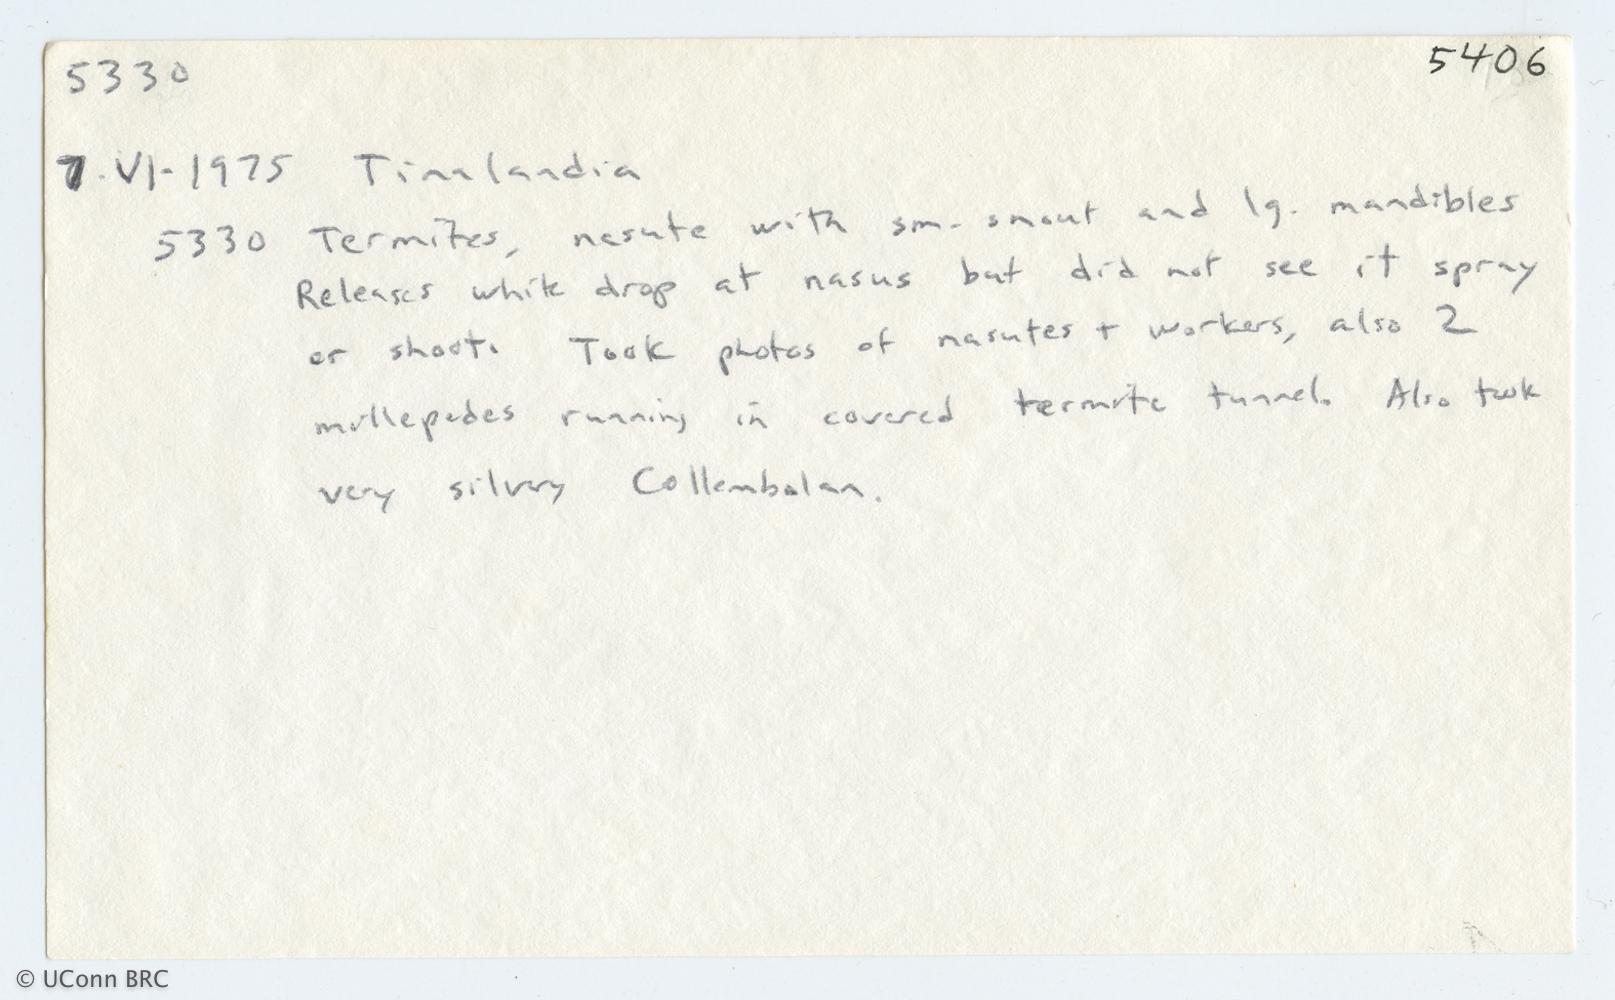 5330
5406
7-VI-1975 Tinalandia
5330 Termites, nasute with sm. snout and lg. mandibles
Releases white drop at nasus but did not see it spray
or shoot. Took photos of nasutes + workers, also 2
millepedes running in covered termite tunnel. Also took
very silvery Collembolan.
© UConn BRC